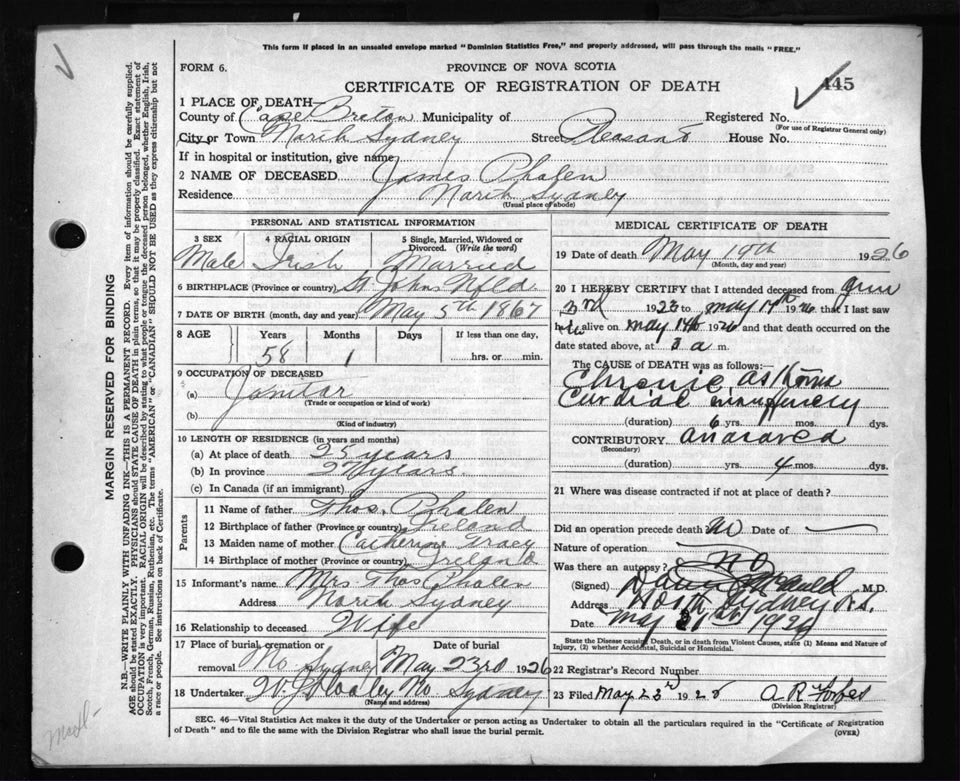 This form if placed in an unsealed envelope marked "Dominion Statistics Free," and properly addressed, will pass through the mails "FREE."
FORM 6.
PROVINCE OF NOVA SCOTIA
CERTIFICATE OF REGISTRATION OF DEATH
445
1 PLACE OF DEATH—
County of Cape Breton Municipality of Registered No.
(For use of Registrar General only)
City or Town North Sydney Street Pleasant House No.
If in hospital or institution, give name
2 NAME OF DECEASED James Phalen
Residence North Sydney
(Usual place of abode)
PERSONAL AND STATISTICAL INFORMATION
3 SEX Male
4 RACIAL ORIGIN Irish
5 Single, Married, Widowed or Divorced. (Write the word) Married
6 BIRTHPLACE (Province or country) St Johns Nfld.
7 DATE OF BIRTH (month, day and year) May 5th 1867
8 AGE Years Months Days If less than one day,
58 1 hrs. or min.
9 OCCUPATION OF DECEASED
(a) Janitar
(Trade or occupation or kind of work)
(b)
(Kind of industry)
10 LENGTH OF RESIDENCE (in years and months)
(a) At place of death 25 years
(b) In province years.
(c) In Canada (if an immigrant)
Parents
11 Name of father Thos. Phalen
12 Birthplace of father (Province or country) Ireland
13 Maiden name of mother Catherine Tracy
14 Birthplace of mother (Province or country) Ireland
15 Informant's name Mrs Thos Phalen
Address North Sydney
16 Relationship to deceased Wife
17 Place of burial, cremation or Date of burial
removal No Sydney May 23rd 1926
18 Undertaker No Sydney
(Name and address)
MEDICAL CERTIFICATE OF DEATH
19 Date of death May 1926
(Month, day and year)
20 I HEREBY CERTIFY that I attended deceased from
3rd 1923 to May 1926 that I last saw
h alive on May 1926 and that death occurred on the
date stated above, at 3 a m.
The CAUSE OF DEATH was as follows:—
Chronic asthma
Cardiac
(duration) 6 yrs. mos. dys.
CONTRIBUTORY
(Secondary)
(duration) yrs. 4 mos. dys.
21 Where was disease contracted if not at place of death?
Did an operation precede death Date of
Nature of operation
Was there an autopsy? NO
(Signed) M.D.
Address North Sydney N.S.
Date May 1926
State the Disease causing Death, or in death from Violent Causes, state (1) Means and Nature of
Injury, (2) whether Accidental, Suicidal or Homicidal.
22 Registrar's Record Number
23 Filed May 23rd 1926 A R Forbes
(Division Registrar)
SEC. 46—Vital Statistics Act makes it the duty of the Undertaker or person acting as Undertaker to obtain all the particulars required in the "Certificate of Registration
of Death" and to file the same with the Division Registrar who shall issue the burial permit.
(OVER)
MARGIN RESERVED FOR BINDING
N.B.—WRITE PLAINLY WITH UNFADING INK—THIS IS A PERMANENT RECORD. Every item of information should be carefully supplied.
AGE should be stated EXACTLY. PHYSICIANS should STATE CAUSE OF DEATH in plain terms, so that it may be properly classified. Exact statement of
OCCUPATION is very important. RACIAL ORIGIN will be described by stating to what people or tongue the deceased person belonged, whether English, Irish,
Scotch, French, German, Russian, Ruthenian, etc. The terms "AMERICAN" or "CANADIAN" SHOULD NOT BE USED as they express citizenship but not
a race or people. See instructions on back of Certificate.